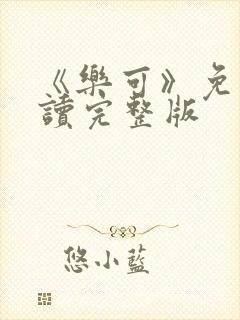 《樂可》免
讀完整版
悠小藍